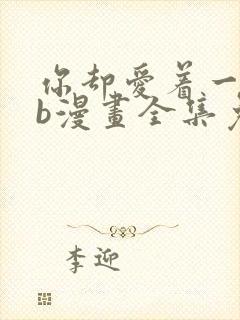 你却愛着一
b漫畫全集
李迎